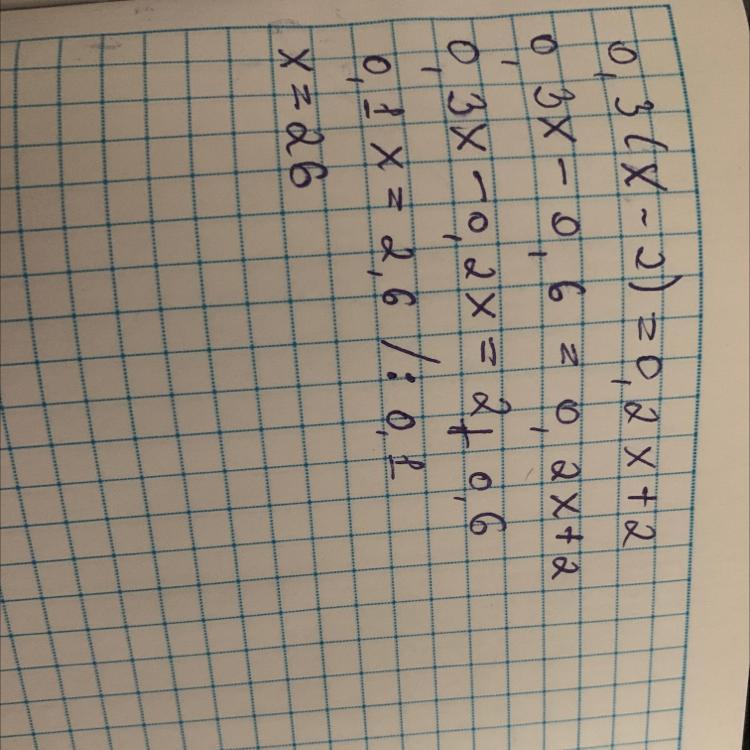 0,3(x-2)=0,2x+2
0,3x-0,6=0,2x+2
0,3x-0,2x=2+0,6
0,1x=2,6 /:0,1
x=26